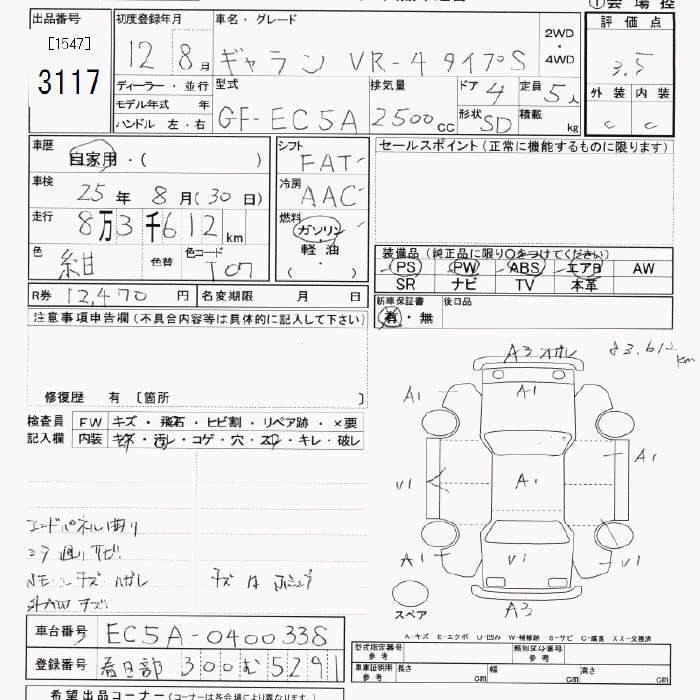 ① 会 場 控
出品番号
[1547]
3117
初度登録年月
12 8月
車名・グレード
ギャラン VR-4 タイプS
2WD
・
4WD
評 価 点
3.5
ディーラー ・ 並行
モデル年式 年
ハンドル 左・右
型式
GF-EC5A
排気量
2500cc
ドア 4
定員 5人
形状 SD
積載 kg
外 装 内 装
C C
車歴
自家用・( )
車検
25年8月(30日)
走行
8万3千612km
色
紺
色替
色コード
T07
シフト
FAT
冷房
AAC
燃料
ガソリン
軽 油
( ・ )
セールスポイント(正常に機能するものに限ります)
装備品(純正品に限り○をつけてください)
PS PW ABS エアB AW
SR ナビ TV 本革
R券 12,470 円
名変期限 月 日
新車保証書
有・無
後日品
注意事項申告欄(不具合内容等は具体的に記入して下さい)
修復歴 有 [箇所 ]
検査員
記入欄
FW キズ・飛石・ヒビ割・リペア跡・×要
内装 キズ・汚レ・コゲ・穴・スレ・キレ・破レ
83.612km
A3
A1 A1
A1
V1 A1
A1 V1 V1
A3
スペア
A-キズ E-エクボ U-凹み W-補修跡 S-サビ C-腐食 XX-交換済
車台番号 EC5A-0400338
登録番号 春日部 300 む 5291
型式指定番号
参考
類別区分番号
参考
車庫証明用
参考
長さ cm 幅 cm 高さ cm
希望出品コーナー(コーナーは各会場